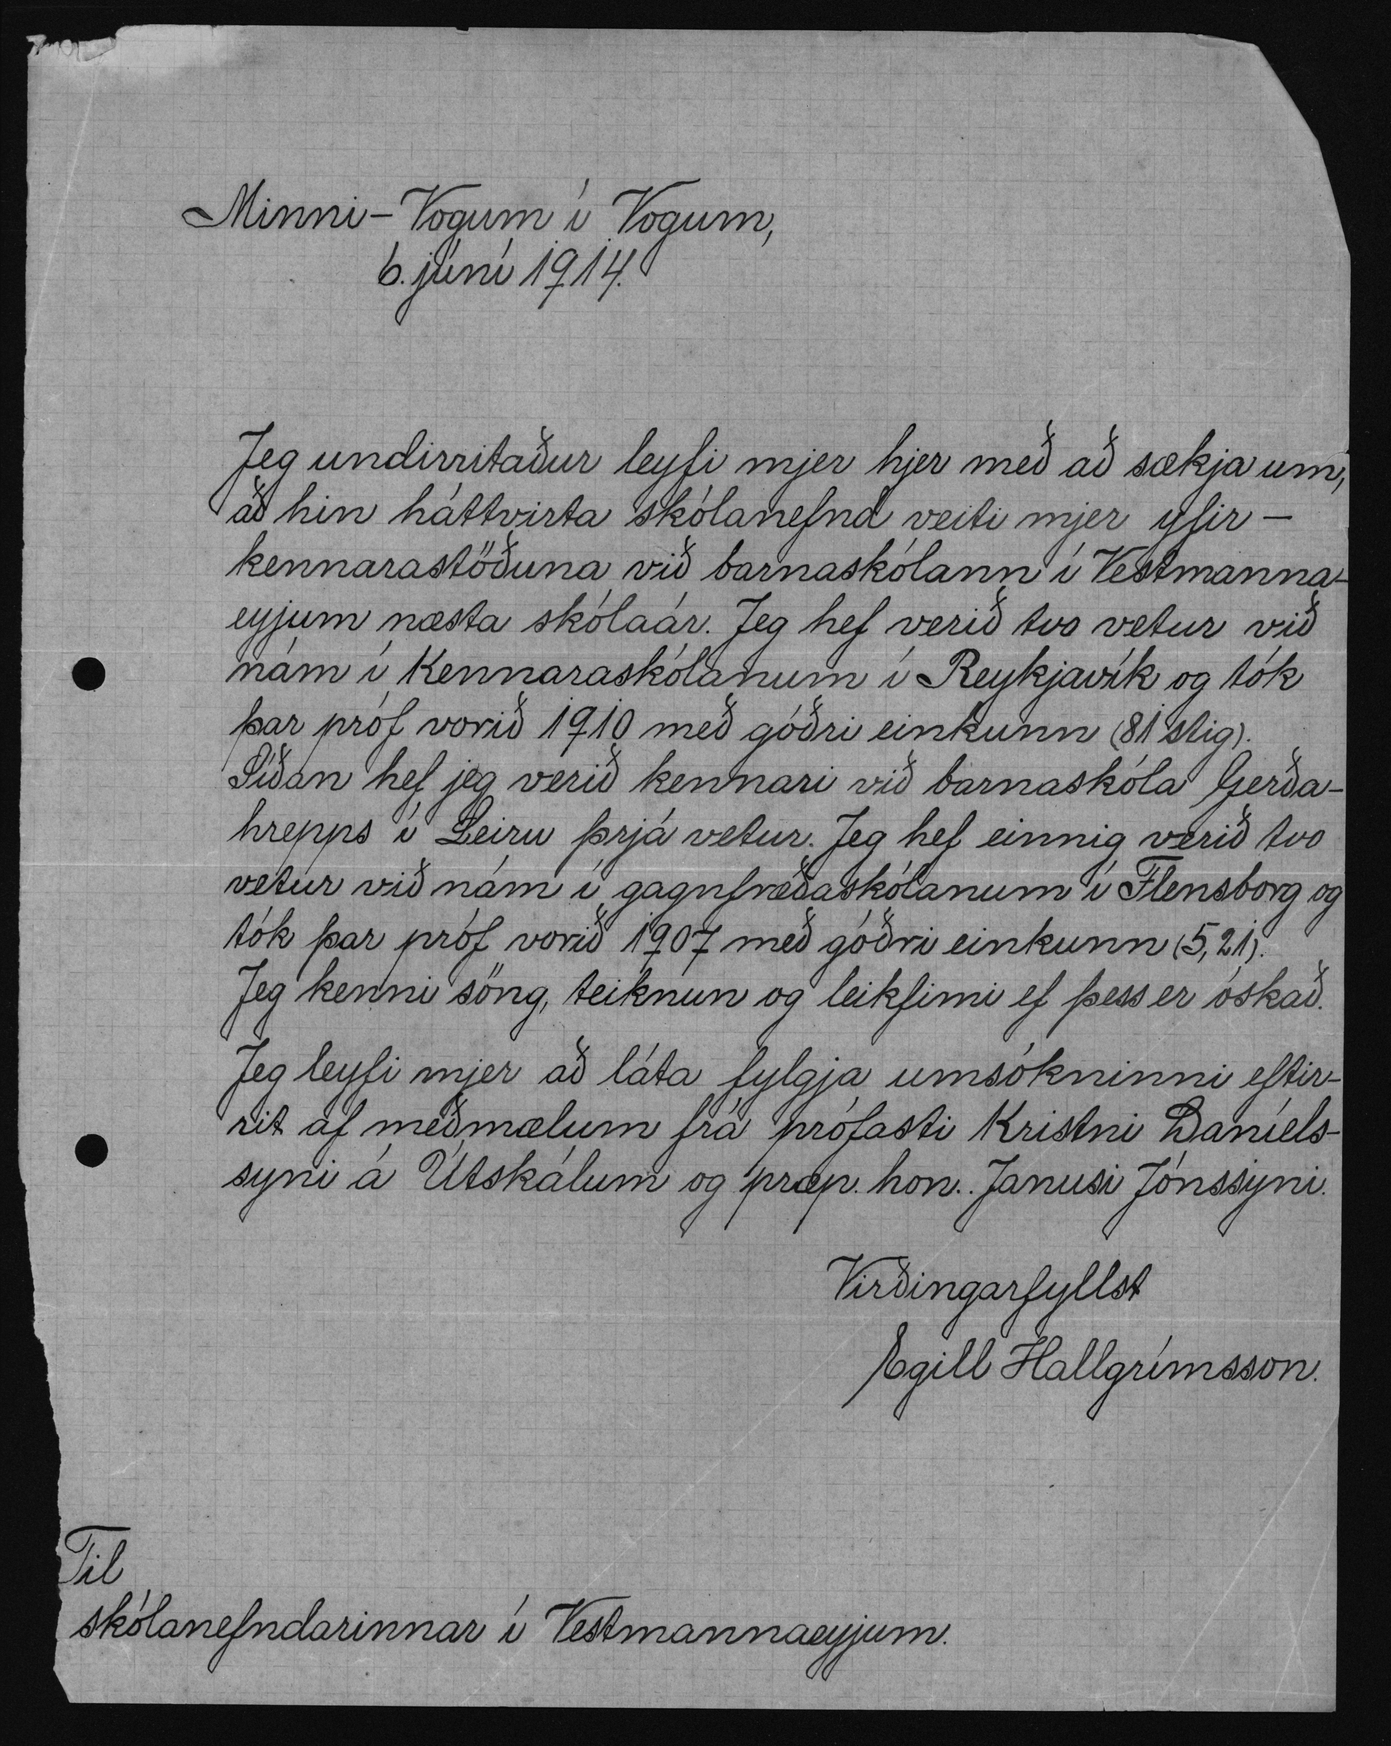 Minni-Vogum í Vogum,
6. júní 1914.
Jeg undirritaður leyfi mjer hjer með að sækja um,
að hin háttvirta skólanefnd veiti mjer yfir-
kennarastöðuna við barnaskólann í Vestmanna-
eyjum næsta skólaár. Jeg hef verið tvo vetur við
nám í Kennaraskólanum í Reykjavík og tók
þar próf vorið 1910 með góðri einkunn (81 stig).
Síðan hef jeg verið kennari við barnaskóla Gerða-
hrepps í Leiru þrjá vetur. Jeg hef einnig verið tvo
vetur við nám í gagnfræðaskólanum í Flensborg og
tók þar próf vorið 1907 með góðri einkunn (5,21).
Jeg kenni söng, teiknun og leikfimi ef þess er óskað.
Jeg leyfi mjer að láta fylgja umsókninni eftir-
rit af meðmælum frá prófasti Kristni Daníels-
syni á Útskálum og præp. hon. Janusi Jónssyni.
Virðingarfyllst
Egill Hallgrímsson.
Til
skólanefndarinnar í Vestmannaeyjum.